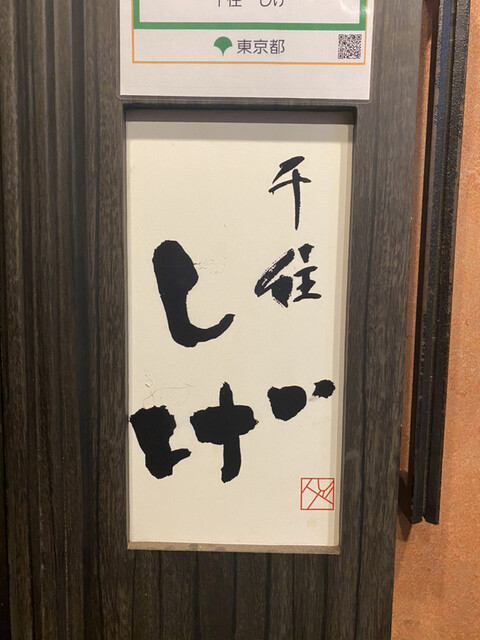 千住 しげ
東京都
千住
しげ